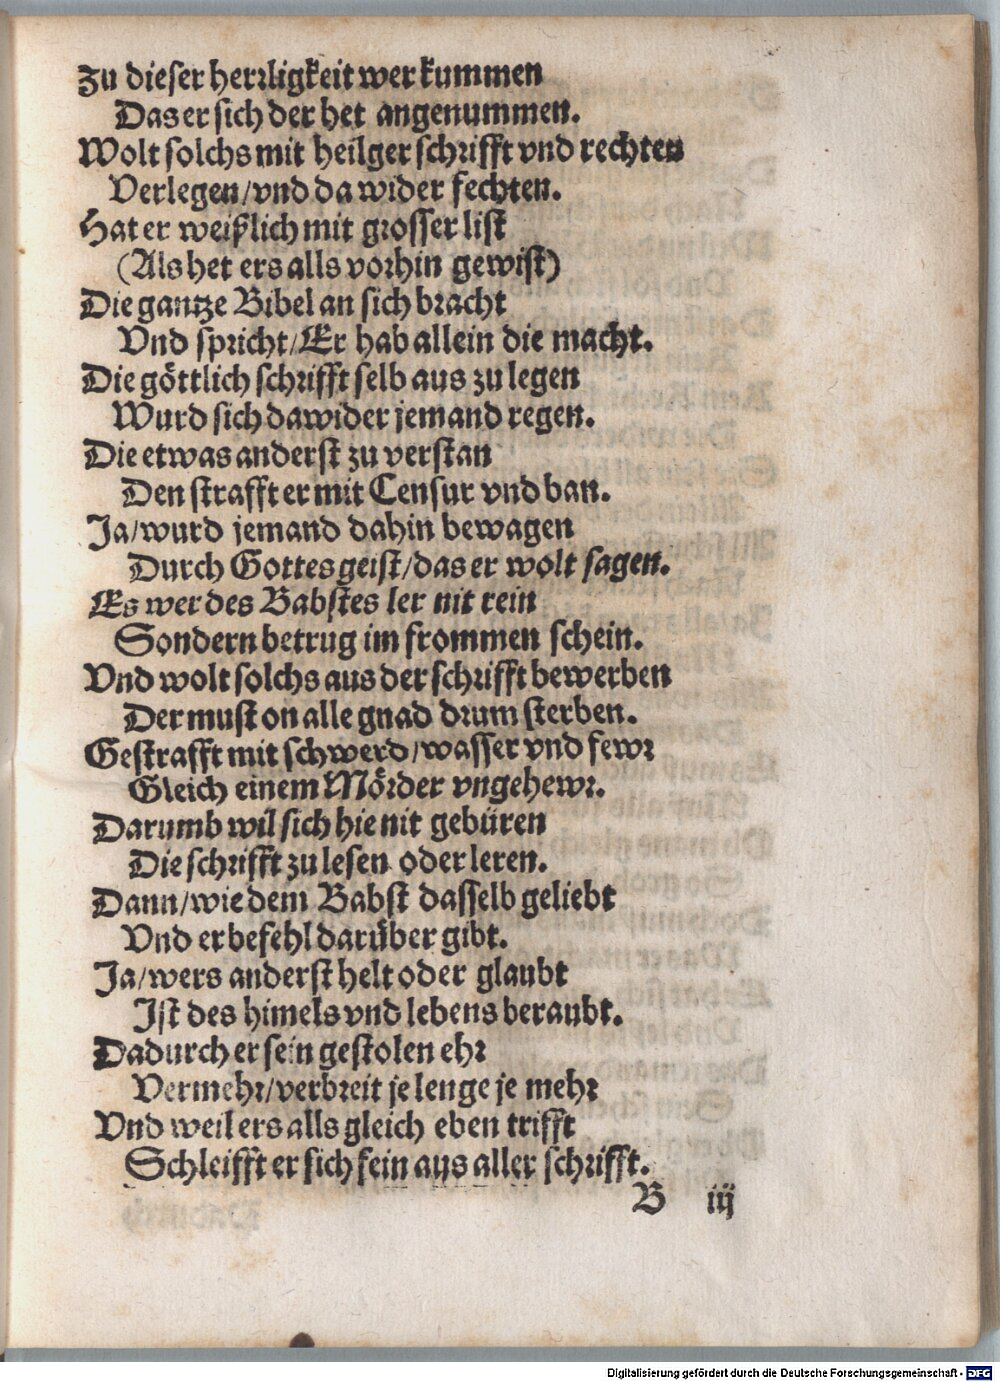 Zu dieser herrligkeit wer kummen
Das er sich der het angenummen.
Wolt solchs mit heilger schrifft vnd rechten
Verlegen/vnd da wider fechten.
Hat er weißlich mit grosser list
(Als het ers alls vorhin gewist)
Die gantze Bibel an sich bracht
Vnd spricht/Er hab allein die macht.
Die göttlich schrifft selb aus zu legen
Wurd sich dawider jemand regen.
Die etwas anderst zu verstan
Den strafft er mit Censur vnd ban.
Ja/wurd jemand dahin bewagen
Durch Gottes geist/das er wolt sagen.
Es wer des Babstes ler nit rein
Sondern betrug im frommen schein.
Vnd wolt solchs aus der schrifft bewerben
Der must on alle gnad drum sterben.
Gestrafft mit schwerd/wasser vnd fewr
Gleich einem Mörder vngehewr.
Darumb wil sich hie nit gebüren
Die schrifft zu lesen oder leren.
Dann/wie dem Babst dasselb geliebt
Vnd er befehl darüber gibt.
Ja/wers anderst helt oder glaubt
Ist des himels vnd lebens beraubt.
Dadurch er sein gestolen ehr
Vermehr/verbreit je lenge je mehr
Vnd weil ers alls gleich eben trifft
Schleifft er sich fein aus aller schrifft.
B iij
Digitalisierung gefördert durch die Deutsche Forschungsgemeinschaft - DFG